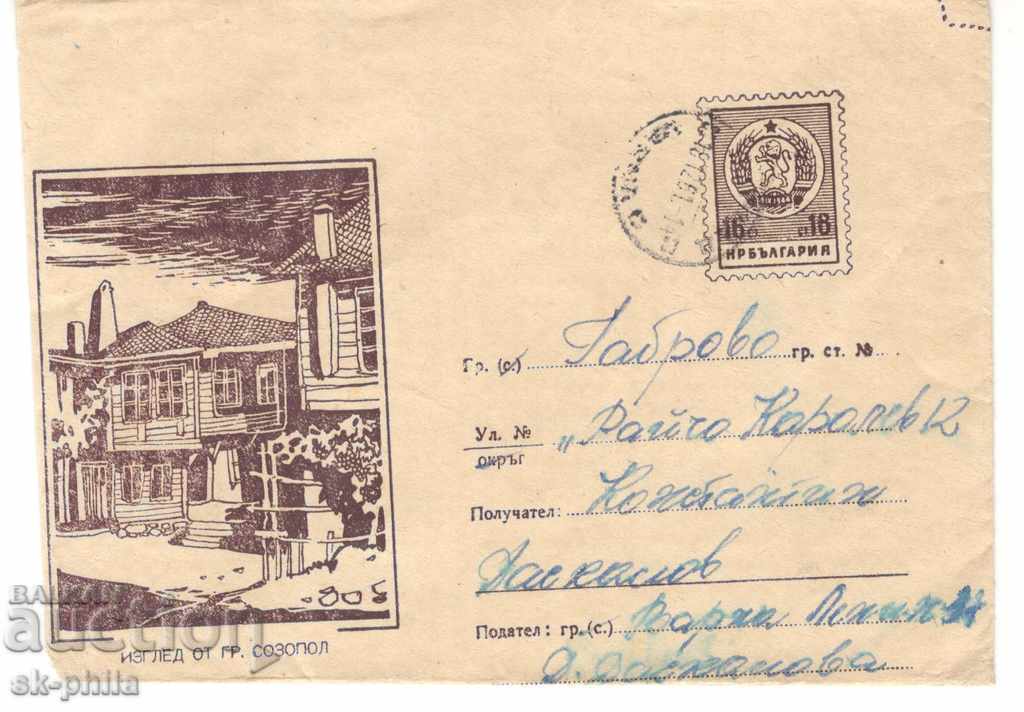 16 16
НРБЪЛГАРИЯ
Гр. (с.) Габрово гр. ст. №
Ул. № „Райчо Каролев 12
окръг
Получател: Константин
Даскалов
Подател: гр. (с.) Варна Ленин
Д. Даскалова
ИЗГЛЕД ОТ ГР. СОЗОПОЛ
BALKAN
auction
sk-phila